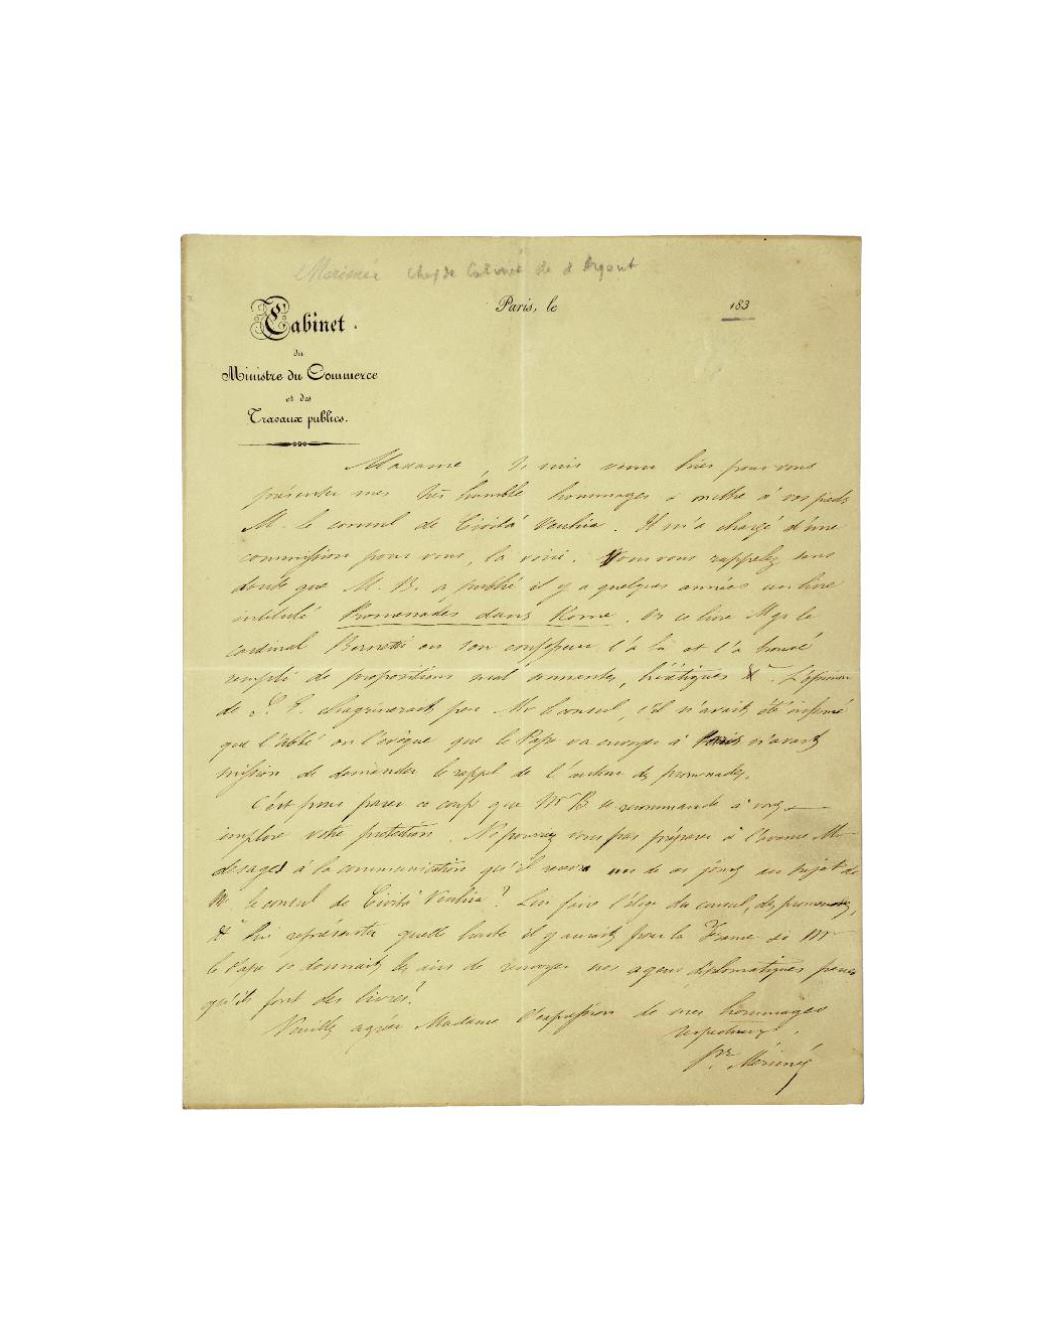 Mérimée chef de Cabinet de d'Argout
Cabinet
du
Ministre du Commerce
et des
Travaux publics.
Paris, le 183
Madame, Je suis venu hier pour vous
présenter mes très humble hommages & mettre à vos pieds
M. le consul de Cività Vecchia. Il m'a chargé d'une
commission pour vous, la voici. Vous vous rappelez sans
doute que M. B. a publié il y a quelques années un livre
intitulé Promenades dans Rome. Or ce livre Mgr le
cardinal Bernetti ou son confesseur l'a lu et l'a trouvé
rempli de propositions mal sonnantes, hérétiques &a. L'opinion
de S. E. chagrinerait peu Mr le Consul, s'il n'avait été informé
que l'abbé ou l'évêque que le Pape va envoyer à Paris n'avait
mission de demander le rappel de l'auteur des promenades.
C'est pour parer ce coup que Mr B se recommande à vous
implore votre protection. Ne pourriez vous pas préparer à l'avance Mr
desages à la communication qu'il recevra un de ces jours au sujet de
Mr. le consul de Cività Vecchia? Lui faire l'éloge du consul, des promenades,
&a lui représenter quelle honte il y aurait pour la France si Mr
le Pape se donnait les airs de renvoyer nos agens diplomatiques parce
qu'ils font des livres!
Veuillez agréer Madame l'expression de mes hommages
respectueux.
Pr. Mérimée